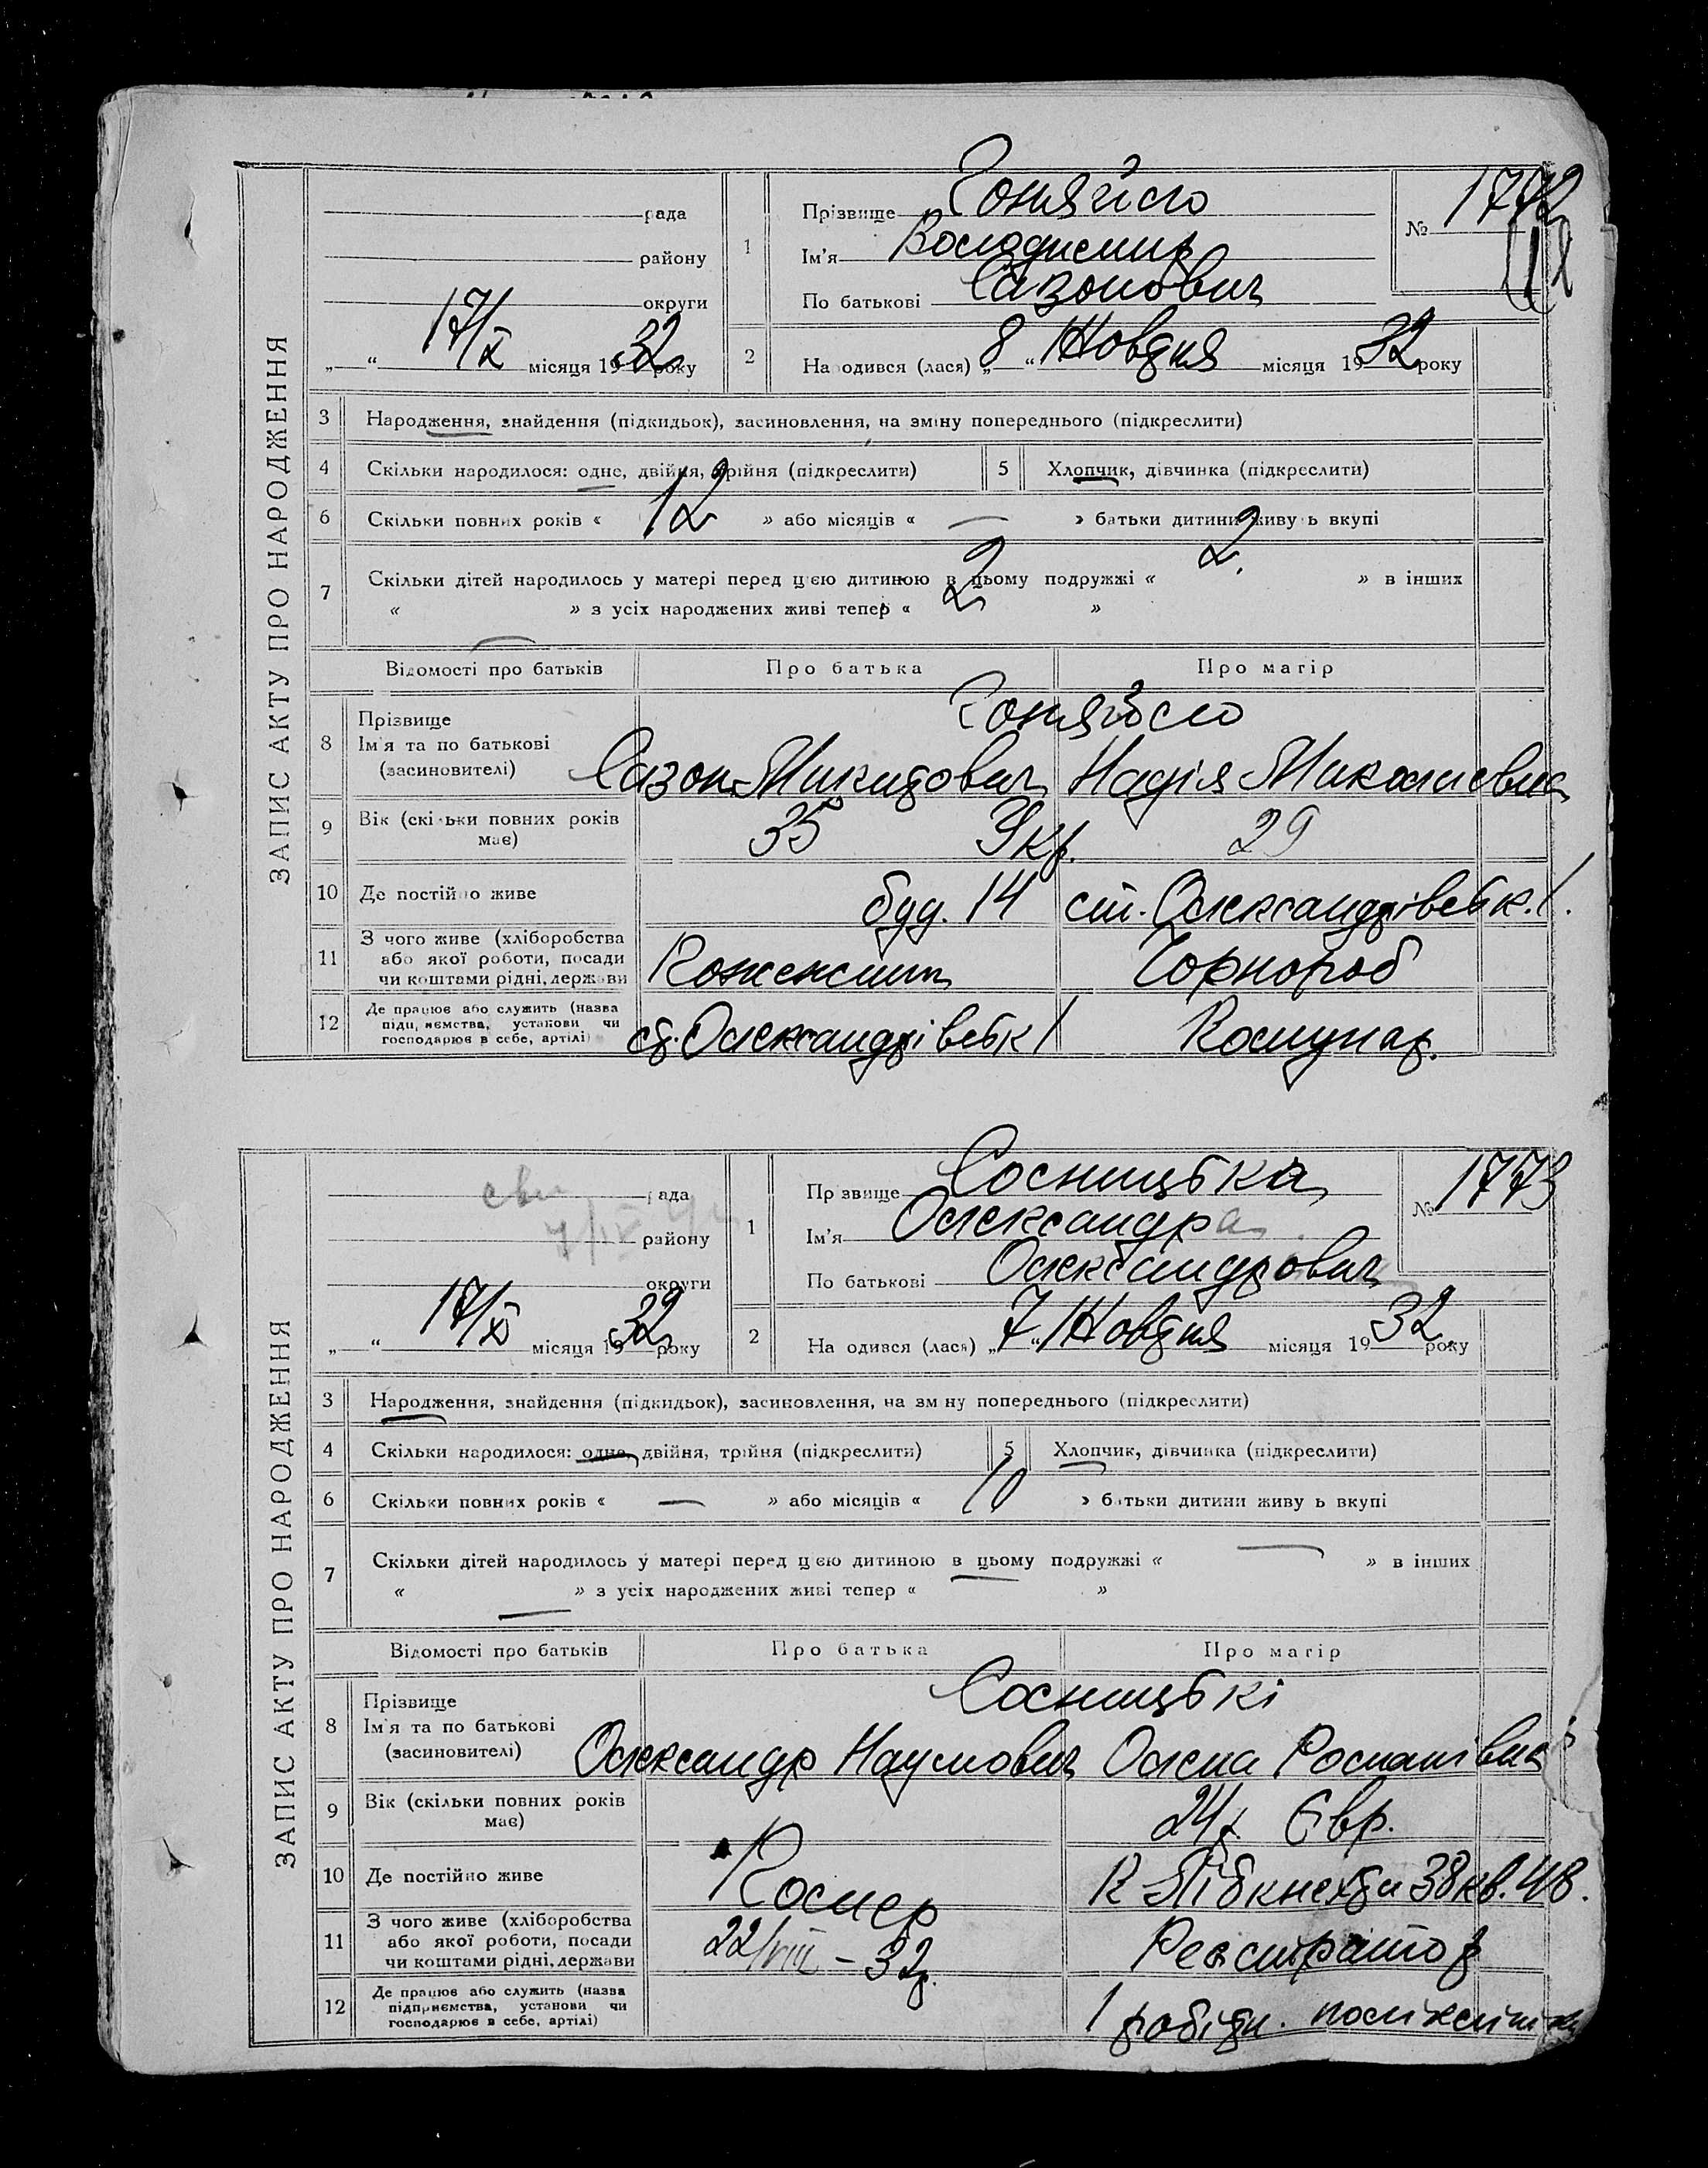 ЗАПИС АКТУ ПРО НАРОДЖЕННЯ
рада
району
округи
„ “ 17/X місяця 1932 року
1
Прізвище Гоняйсло
Ім'я Володимир
По батькові Сазонович
№ 1772
2
Народився (лася) „8“ Жовтня місяця 1932 року
3 Народження, знайдення (підкидьок), засиновлення, на зміну попереднього (підкреслити)
4 Скільки народилося: одне, двійня, трійня (підкреслити)
5 Хлопчик, дівчинка (підкреслити)
6 Скільки повних років « 12 » або місяців « — » батьки дитини живуть вкупі
7 Скільки дітей народилось у матері перед цією дитиною в цьому подружжі « 2. » в інших
« — » з усіх народжених живі тепер « 2 »
Відомості про батьків Про батька Про матір
8 Прізвище
Ім'я та по батькові
(засиновителі)
Сазон Микитович Надія Миколаєвна
9 Вік (скільки повних років має) 35 Укр. 29
10 Де постійно живе буд. 14 ст. Олександрівськ. 1.
11 З чого живе (хліборобства
або якої роботи, посади
чи коштами рідні, держави
Чорнороб
12 Де працює або служить (назва
підприємства, установи чи
господарює в себе, артілі)
ст. Олександрівськ 1 Комунар.
ЗАПИС АКТУ ПРО НАРОДЖЕННЯ
рада
району
округи
„ “ 17/X місяця 1932 року
1
Прізвище Сосницька
Ім'я Олександра
По батькові Олександрович
№ 1773
2
Народився (лася) „7“ Жовтня місяця 1932 року
3 Народження, знайдення (підкидьок), засиновлення, на зміну попереднього (підкреслити)
4 Скільки народилося: одне, двійня, трійня (підкреслити)
5 Хлопчик, дівчинка (підкреслити)
6 Скільки повних років « — » або місяців « 10 » батьки дитини живуть вкупі
7 Скільки дітей народилось у матері перед цією дитиною в цьому подружжі « — » в інших
« — » з усіх народжених живі тепер « — »
Відомості про батьків Про батька Про матір
8 Прізвище
Ім'я та по батькові
(засиновителі)
Сосницькі
Олександр Наумович Олена Романівна
9 Вік (скільки повних років має) 24 Євр.
10 Де постійно живе К Лібкнехта 38 кв. 48.
11 З чого живе (хліборобства
або якої роботи, посади
чи коштами рідні, держави
Помер
22/VIII – 32р.
Реєстратор
12 Де працює або служить (назва
підприємства, установи чи
господарює в себе, артілі)
1 робітн.